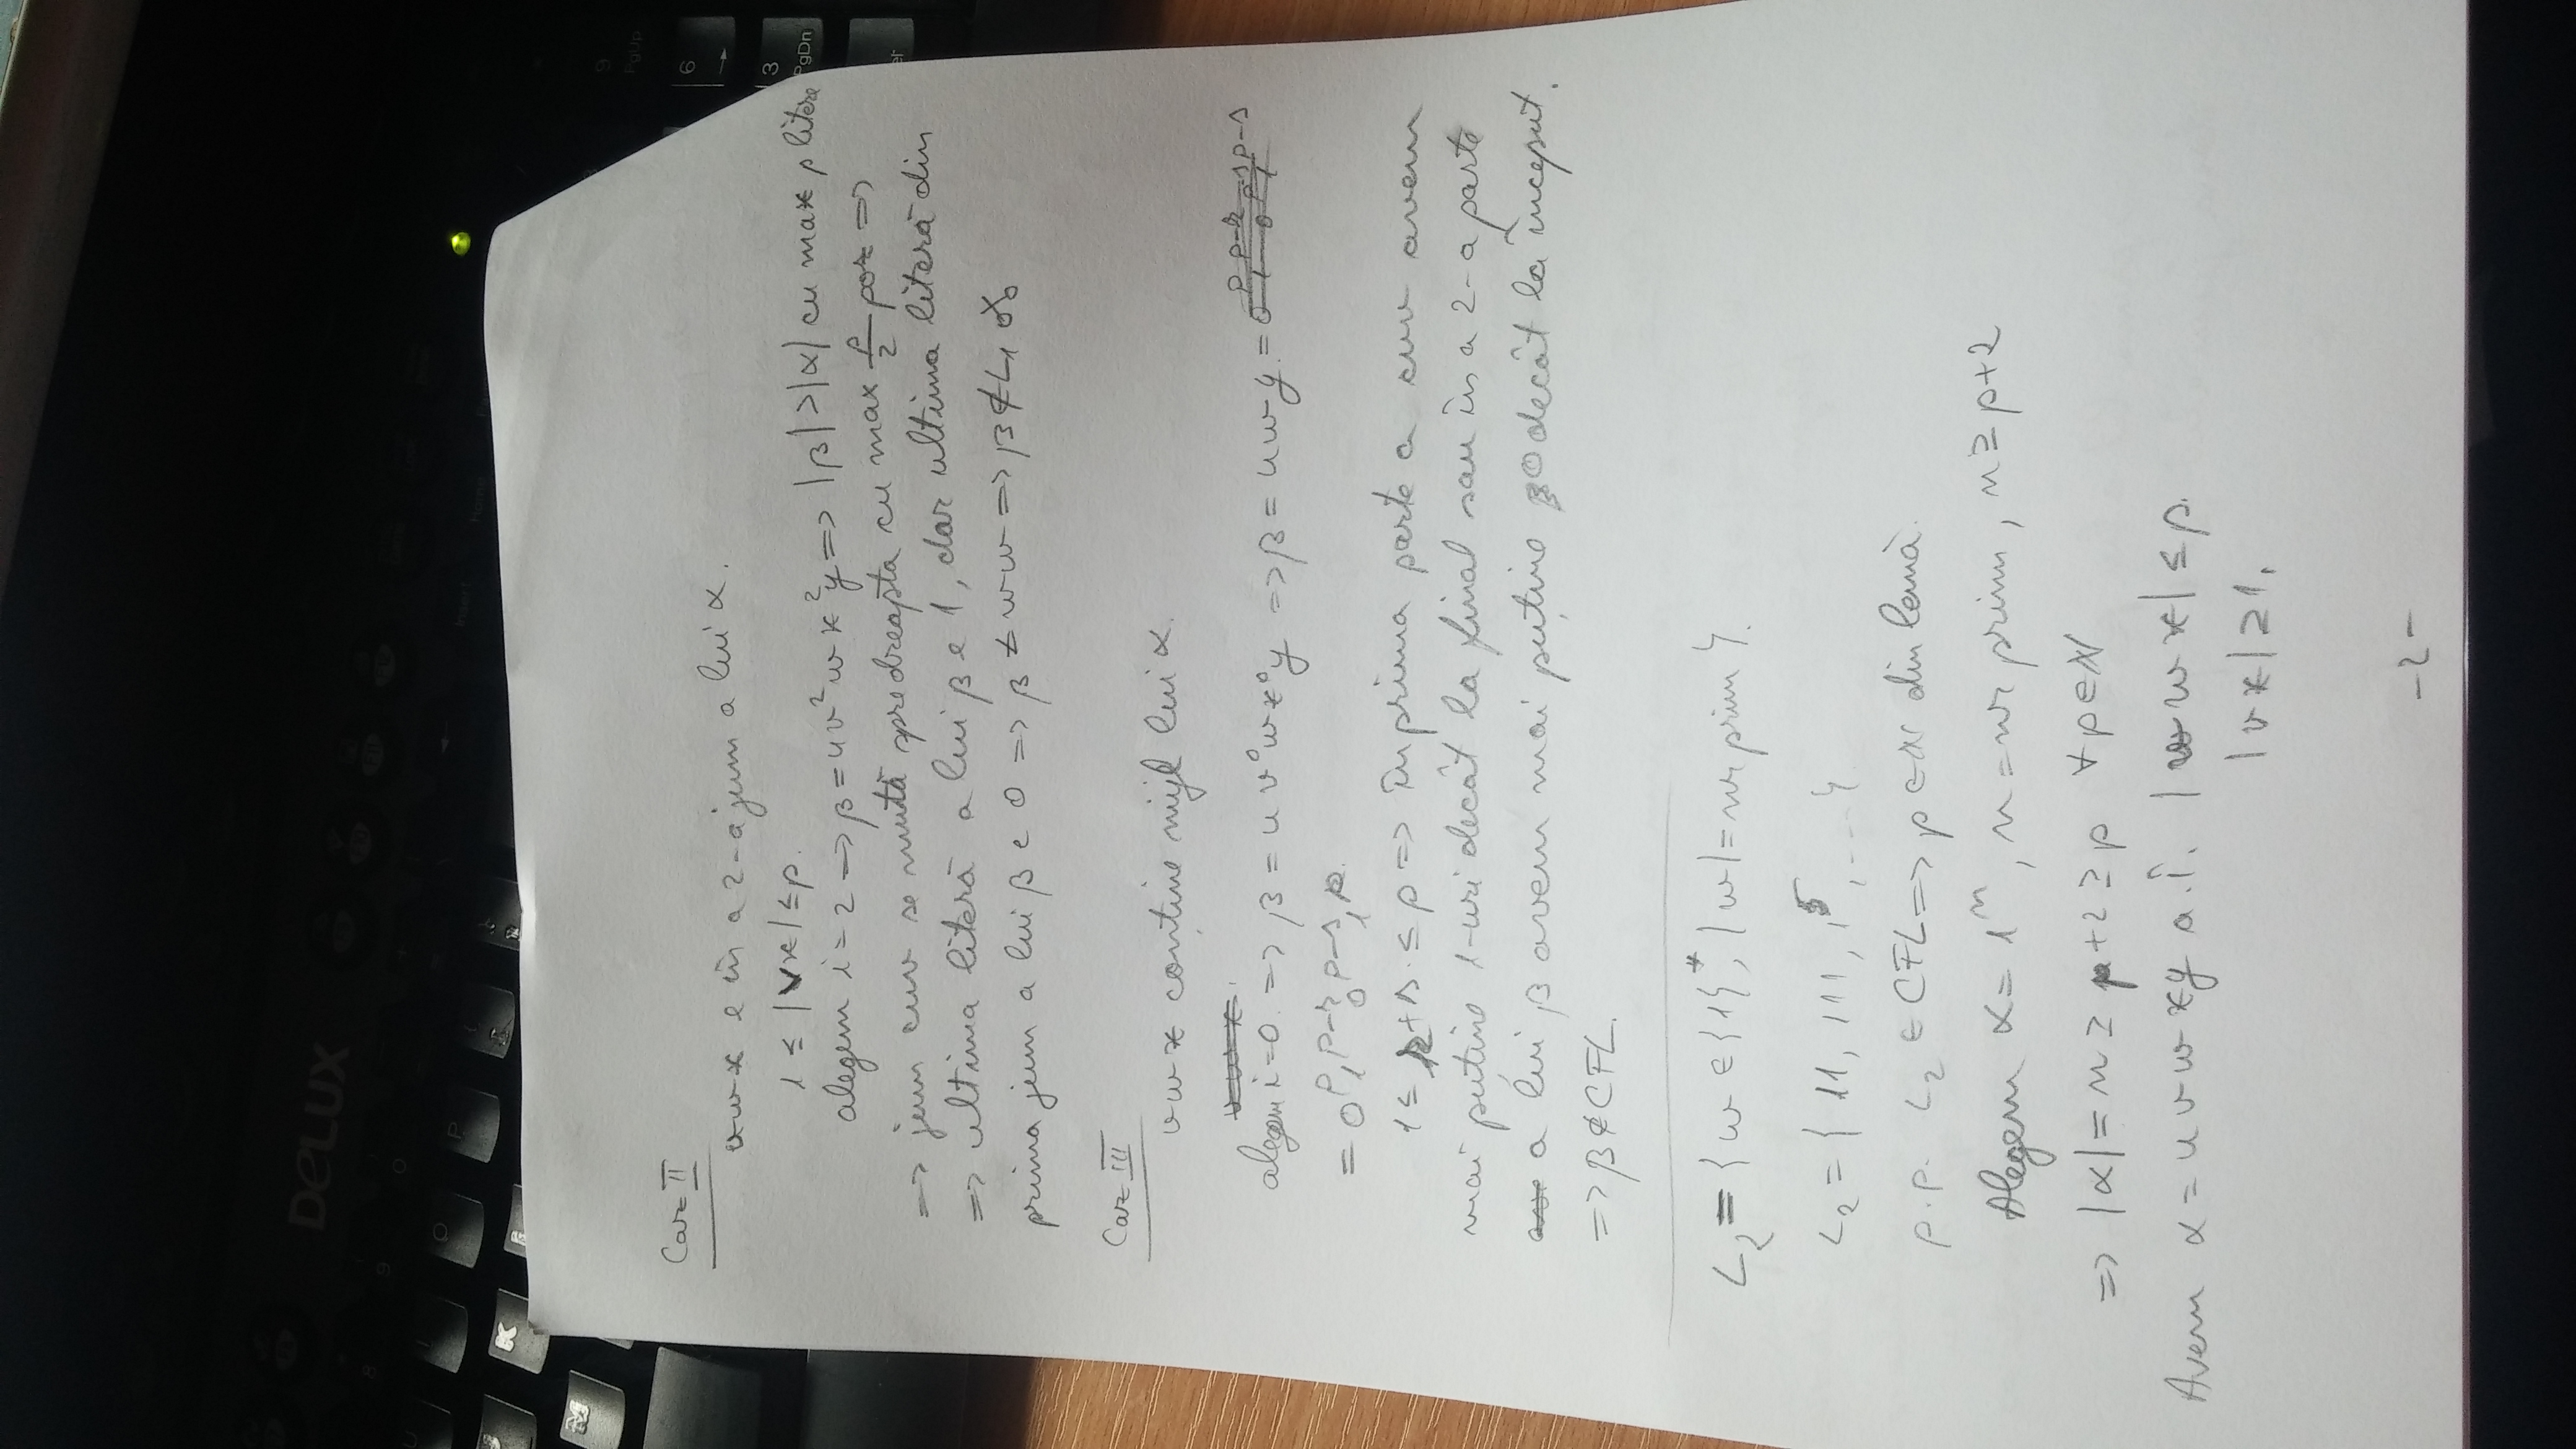 DELUX
U I O P
K
M
Insert
Home
9
PgUp
6
3
PgDn
Caz II
vwx e în a 2-a jum a lui α.
1 ≤ |vx| ≤ p.
alegem i = 2 => β = uv²wx²y => |β| > |α| cu max p litere
=> jum cuv se mută spre dreapta cu max p/2 poz =>
=> ultima literă a lui β e 1, dar ultima literă din
prima jum a lui β e 0 => β ≠ ww => β ∉ L₁
Caz III
vwx conține mijl lui α.
alegem i=0. => β = uv⁰wx⁰y => β = uwy =
= 0^p 1^{p-r} 0^{p-s} 1^p.
1 ≤ r+s ≤ p => în prima parte a cuv avem
mai puține 1-uri decât la final sau în a 2-a parte
a lui β avem mai puține 0 decât la început.
=> β ∉ CFL.
L₂ = {w ∈ {1}*, |w| = nr prim}.
L₂ = { 11, 111, 1⁵, ....}
p.p. L₂ ∈ CFL => p ∈ N din lemă.
Alegem α = 1^n, n = nr prim, n ≥ p+2
=> |α| = n ≥ p+2 ≥ p ∀p∈N
Avem α = uvwxy a.î. |vwx| ≤ p.
|vx| ≥ 1.
-2-